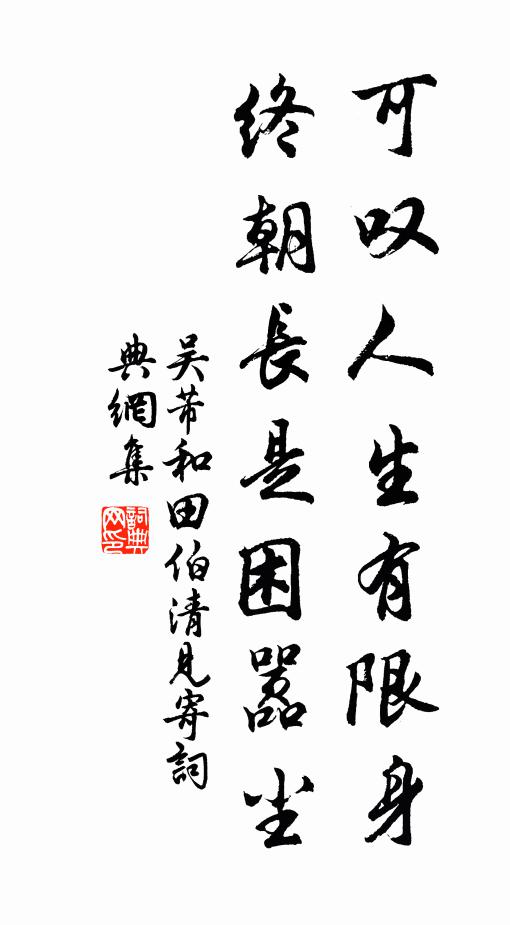 可叹人生有限身
终朝長是困嚣尘
吴芾和田伯清見寄詞
典網集
詞典网印